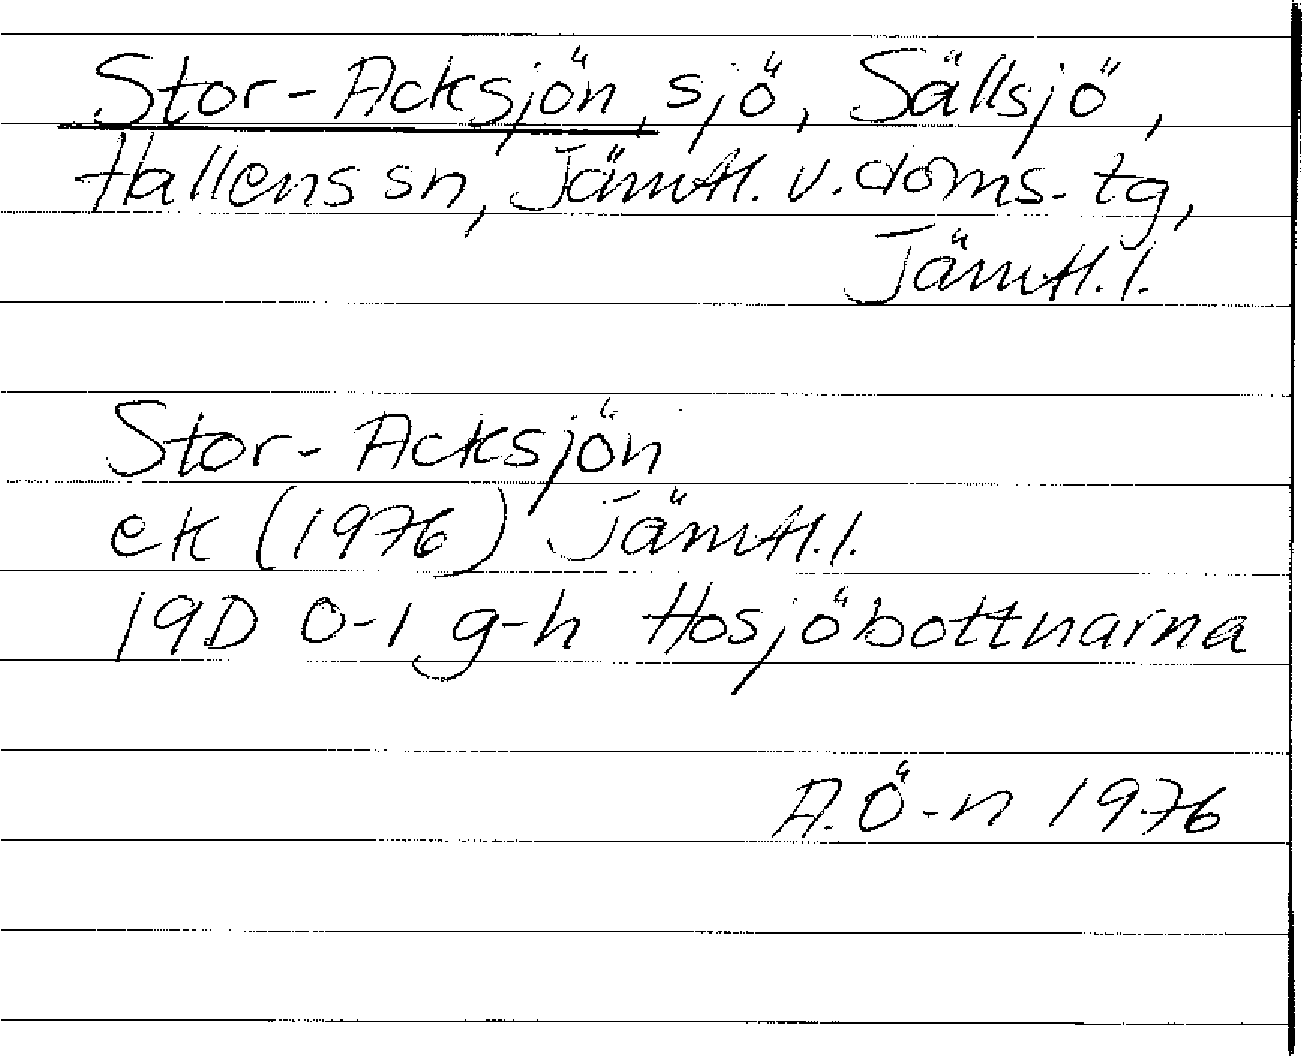 Stor-Acksjön, sjö, Sällsjö,
Hallens sn, Jämtl. v. doms. tg,
Jämtl. l.
Stor-Acksjön
ek (1976) Jämtl. l.
19D 0-1 g-h Hosjöbottnarna
A. Ö-n 1976